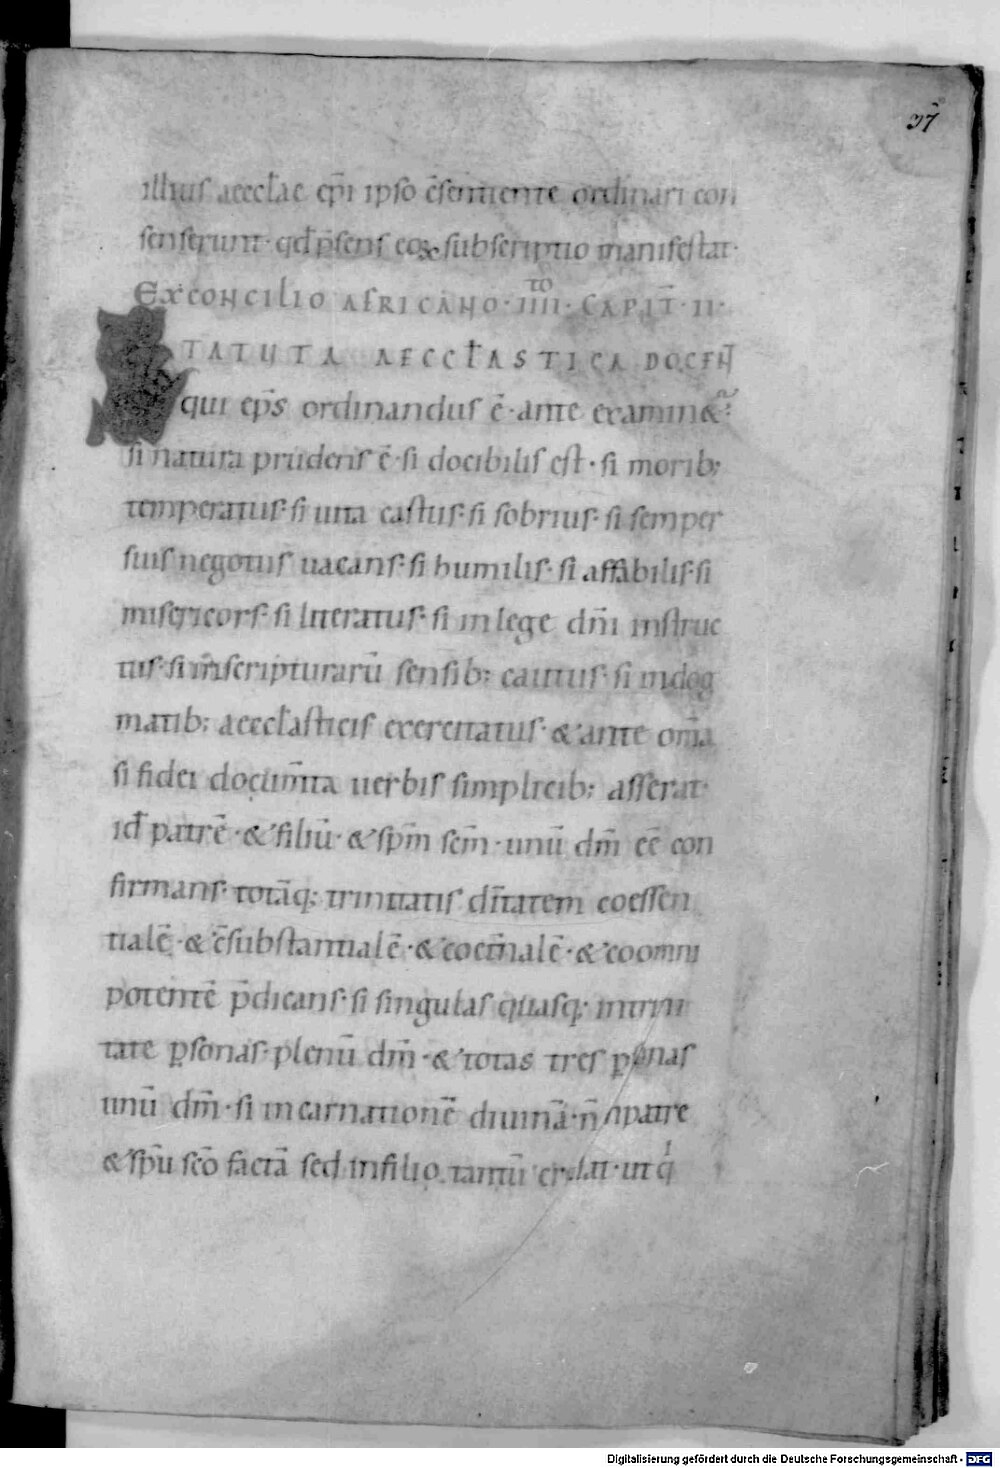 37
illius aeccl̄ae ep̄i ipso c̄sentiente ordinari con
senserunt· qd̄ p̄sens eoꝝ subscriptio manifestat·
EX CONCILIO AFRICANO· IIII^TO· CAPIT̄· II·
STATUTA AECCL̄ASTICA DOCENT
qui ep̄s ordinandus ē· ante examin&ur:
si natura prudens ē· si docibilis est· si morib;
temperatus· si uita castus· si sobrius· si semper
suis negotiis uacans· si humilis· si affabilis· si
misericors· si litteratus· si in lege dn̄i instruc
tus· si in scripturarū sensib; cautus· si in dog
matib; aeccl̄asticis exercitatus· & ante om̄ia
si fidei docum̄ta uerbis simplicib; asserat·
id̄ patrē· & filiū· & sp̄m sc̄m· unū dm̄ eē con
firmans· totāq; trinitatis dn̄tatem coessen
tialē· & c̄substantialē· & coet̄nalē· & coomni
potentē p̄dicans· si singulas quasq; in trini
tate ꝑsonas· plenū dm̄· & totas tres ꝑsonas
unū dm̄· si incarnationē diuinā· n̄ in patre
& sp̄u sc̄o factā sed in filio tantū credat· ut q^i
Digitalisierung gefördert durch die Deutsche Forschungsgemeinschaft - DFG